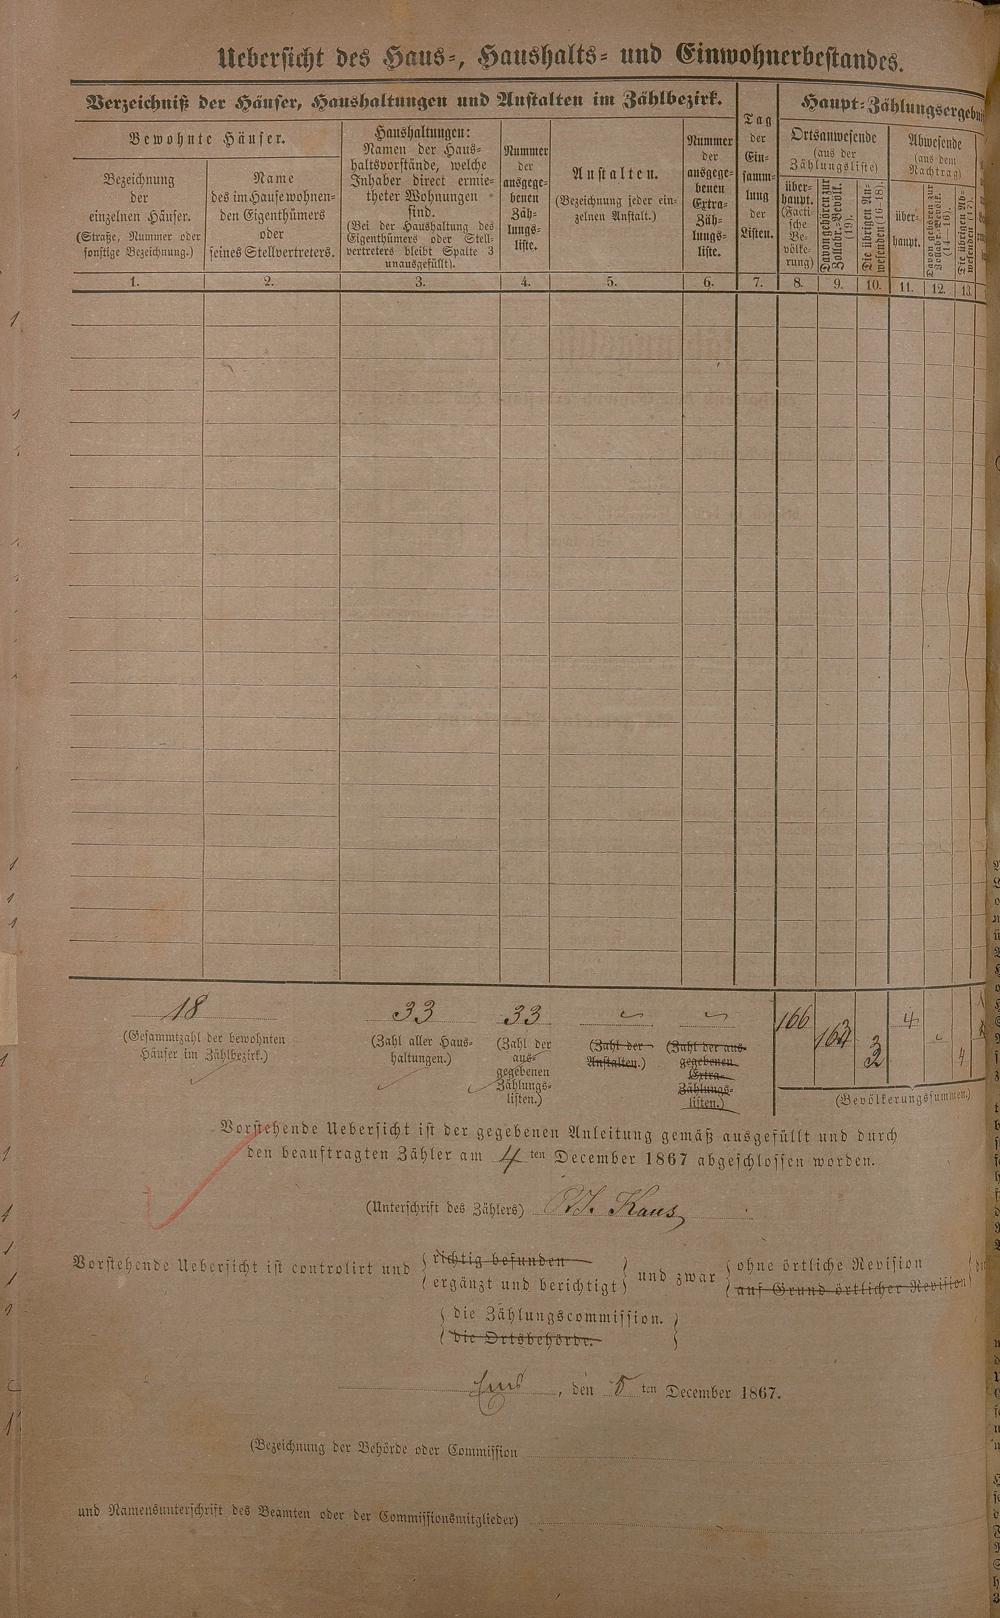 Uebersicht des Haus-, Haushalts- und Einwohnerbestandes.
Verzeichniß der Häuser, Haushaltungen und Anstalten im Zählbezirk.
Bewohnte Häuser.
Bezeichnung
der
einzelnen Häuser.
(Straße, Nummer oder
sonstige Bezeichnung.)
Name
des im Hause wohnen-
den Eigenthümers
oder
seines Stellvertreters.
Haushaltungen:
Namen der Haus-
haltsvorstände, welche
Inhaber direct ermie-
theter Wohnungen
sind.
(Bei der Haushaltung des
Eigenthümers oder Stell-
vertreters bleibt Spalte 3
unausgefüllt).
Nummer
der
ausgege-
benen
Zäh-
lungs-
liste.
Anstalten.
(Bezeichnung jeder ein-
zelnen Anstalt.)
Nummer
der
ausgege-
benen
Extra-
Zäh-
lungs-
liste.
Tag
der
Ein-
samm-
lung
der
Listen.
Haupt-Zählungsergebni
Ortsanwesende
(aus der
Zählungsliste)
über-
haupt.
(Facti-
sche
Be-
völke-
rung)
Davon gehören zur
Zollabr.-Bevölk.
(19).
Die übrigen An-
wesenden (16–18).
Abwesende
(aus dem
Nachtrag)
über-
haupt.
Davon gehören zur
Zollabr.-Bevölk.
(14–16).
Die übrigen Ab-
wesenden (17).
1. 2. 3. 4. 5. 6. 7. 8. 9. 10. 11. 12. 13.
18 33 33 166 4
3
4
(Gesammtzahl der bewohnten
Häuser im Zählbezirk.)
(Zahl aller Haus-
haltungen.)
(Zahl der
aus-
gegebenen
Zählungs-
listen.)
(Zahl der
Anstalten.)
(Zahl der aus-
gegebenen
Extra-
Zählungs-
listen.)
(Bevölkerungssummen.)
Vorstehende Uebersicht ist der gegebenen Anleitung gemäß ausgefüllt und durch
den beauftragten Zähler am 4 ten December 1867 abgeschlossen worden.
(Unterschrift des Zählers) Kaus
Vorstehende Uebersicht ist controlirt und richtig befunden
ergänzt und berichtigt und zwar ohne örtliche Revision
auf Grund örtlicher Revision
die Zählungscommission.
die Ortsbehörde.
Ems, den 8 ten December 1867.
(Bezeichnung der Behörde oder Commission
und Namensunterschrift des Beamten oder der Commissionsmitglieder)